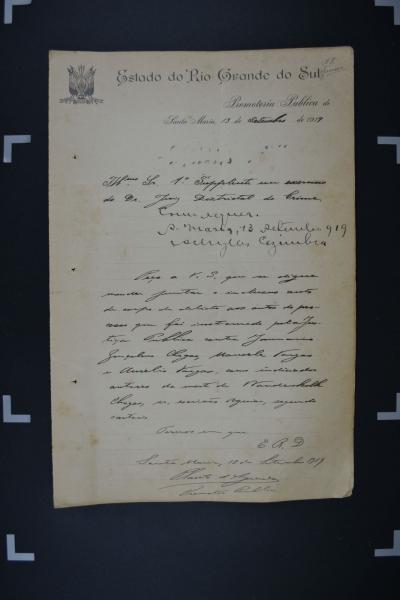 Estado do Rio Grande do Sul
Promotoria Publica de
Santa Maria, 13 de Setembro de 1919
Illmo Sr. 1º Supplente em exercicio
do Dr. Juiz Districtal do Crime
Como requer.
S. Maria, 13 Setembro 919
Coimbra
Peço a V. S. que se digne
mandar juntar o incluso auto
de corpo de delicto aos autos de pro-
cesso que foi instaurado pela Jus-
tiça Publica contra
Gonçalves Chagas, Manoela Vargas
e Aurelio Vargas, como indiciados
autores da morte de
Chagas,
Termos em que
E. R. D
Santa Maria, 13 de Setembro 1919
Promotor Publico